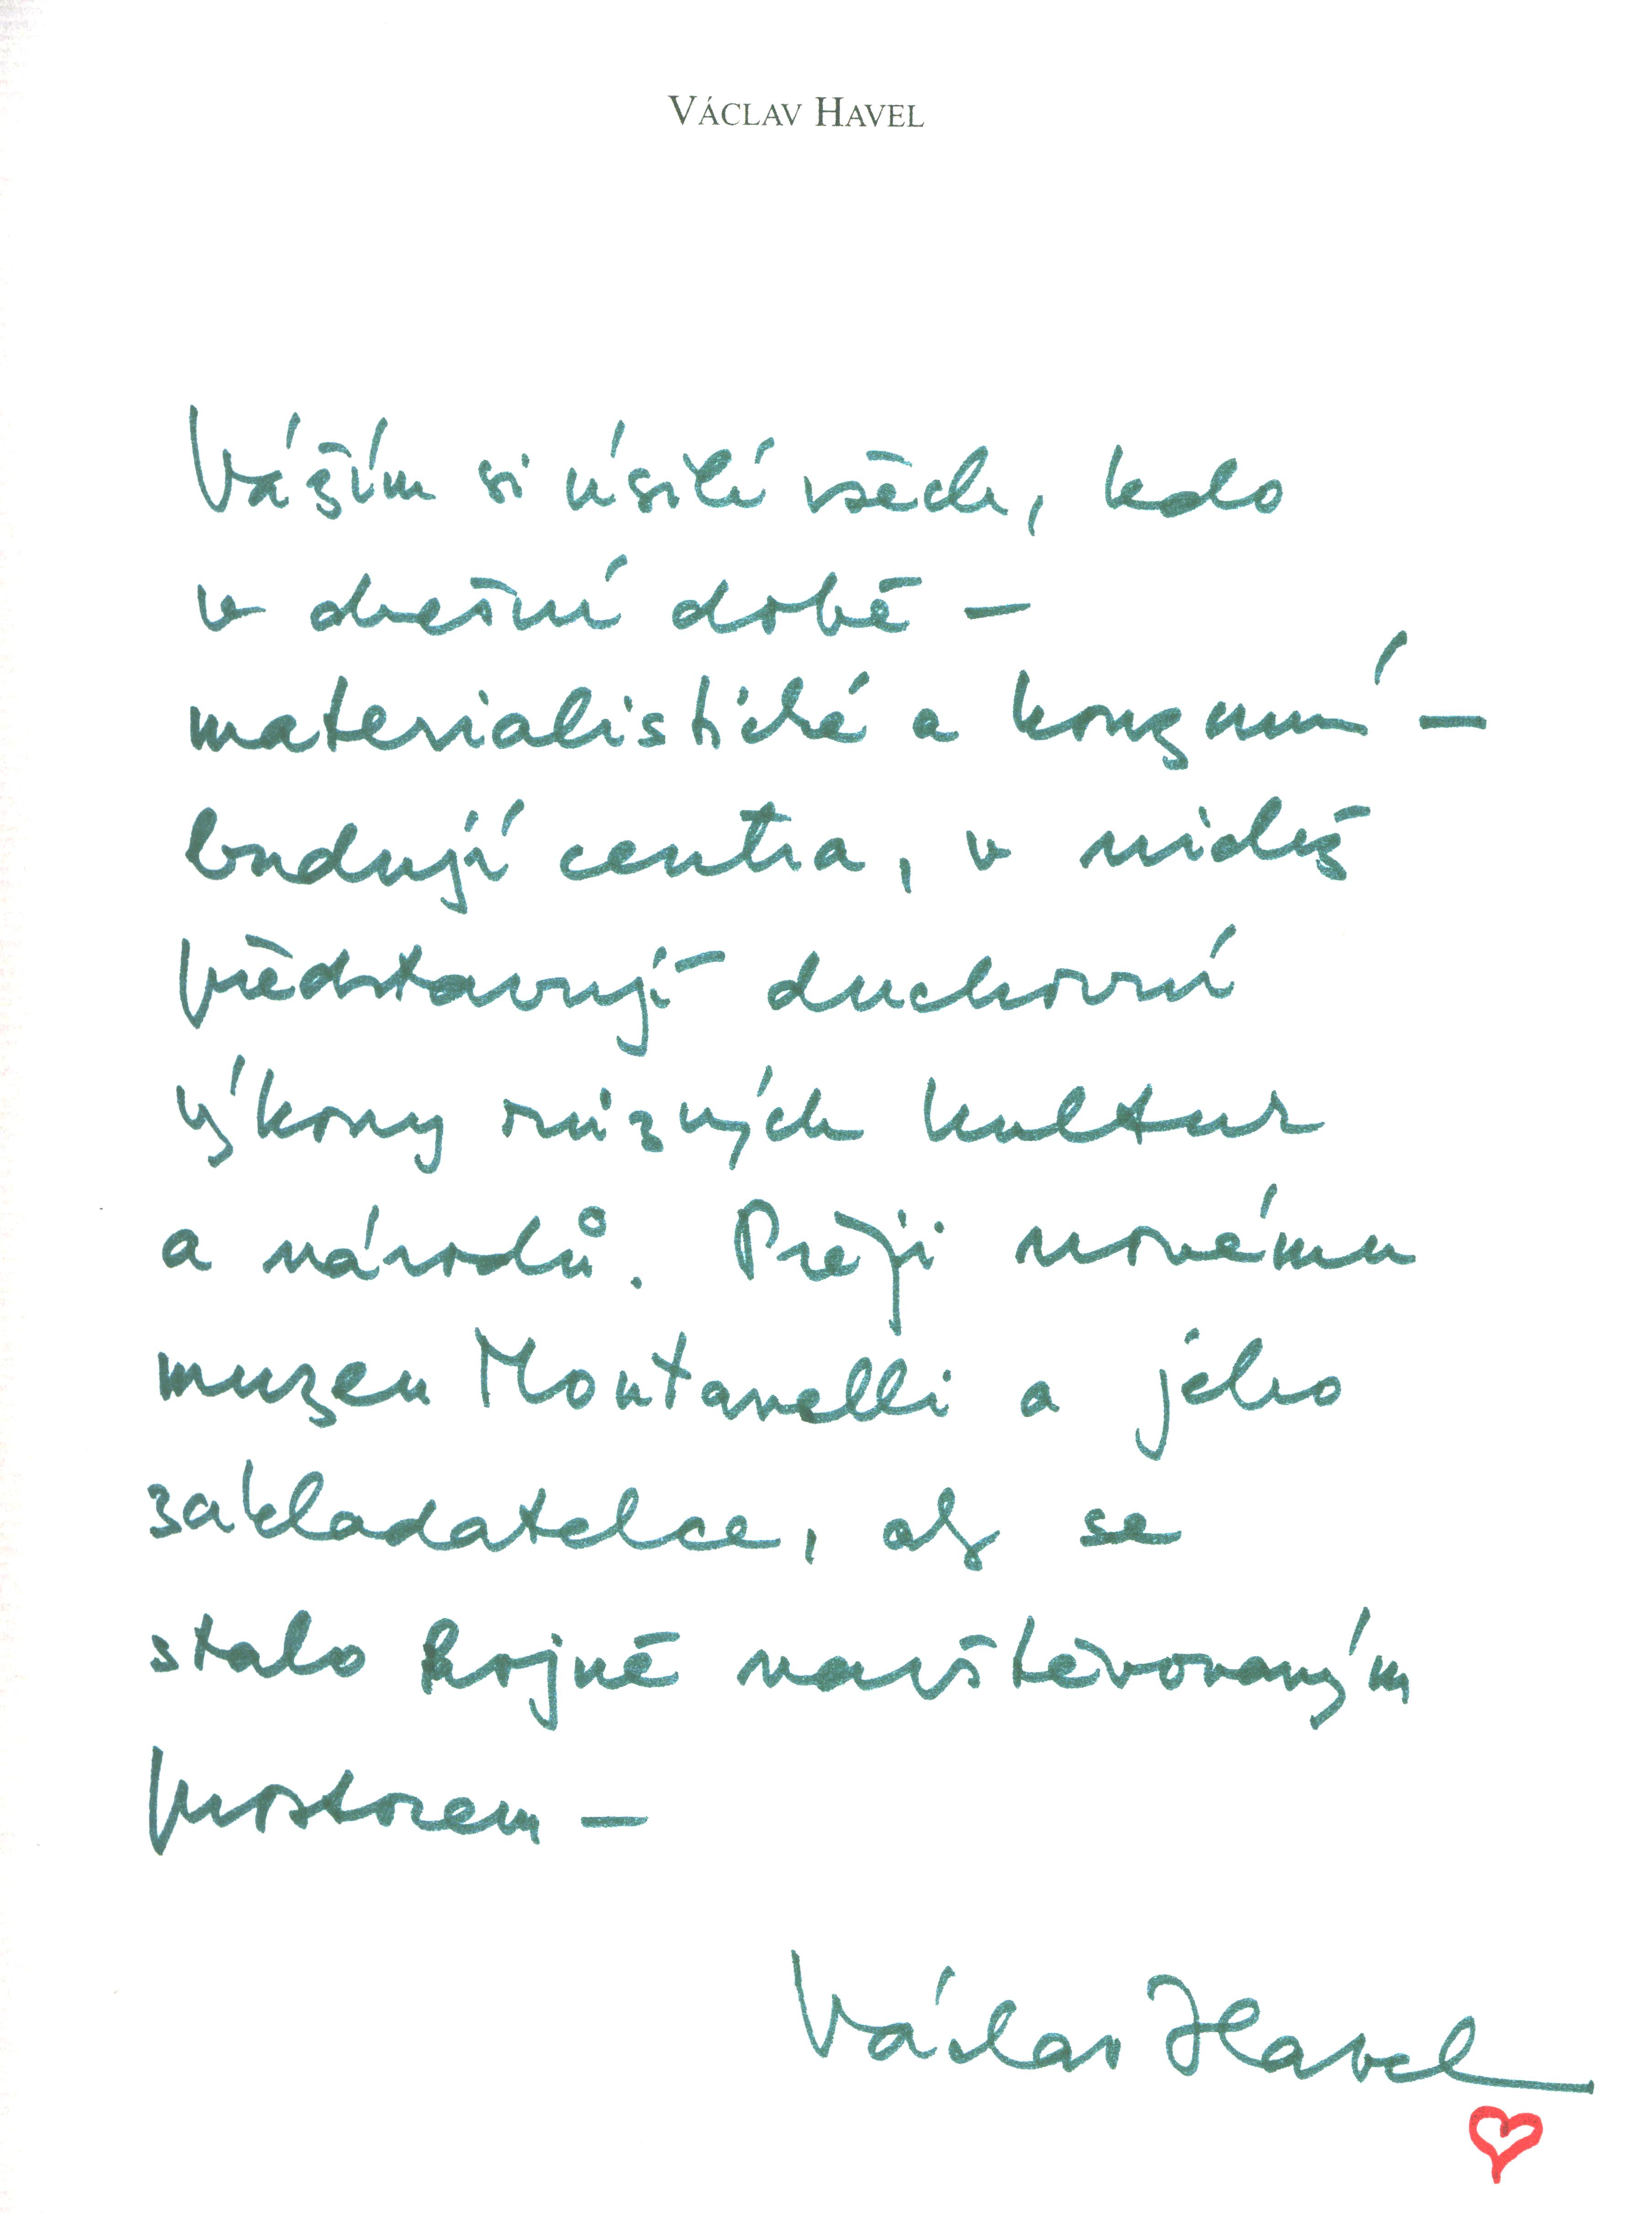 VÁCLAV HAVEL
Vážím si úsilí všech, kdo
v dnešní době –
materialistické a konzumní –
budují centra, v nichž
představují duchovní
výkony různých kultur
a národů. Přeji novému
muzeu Montanelli a jeho
zakladatelce, ať se
stalo hojně navštěvovaným
prostorem –
Václav Havel